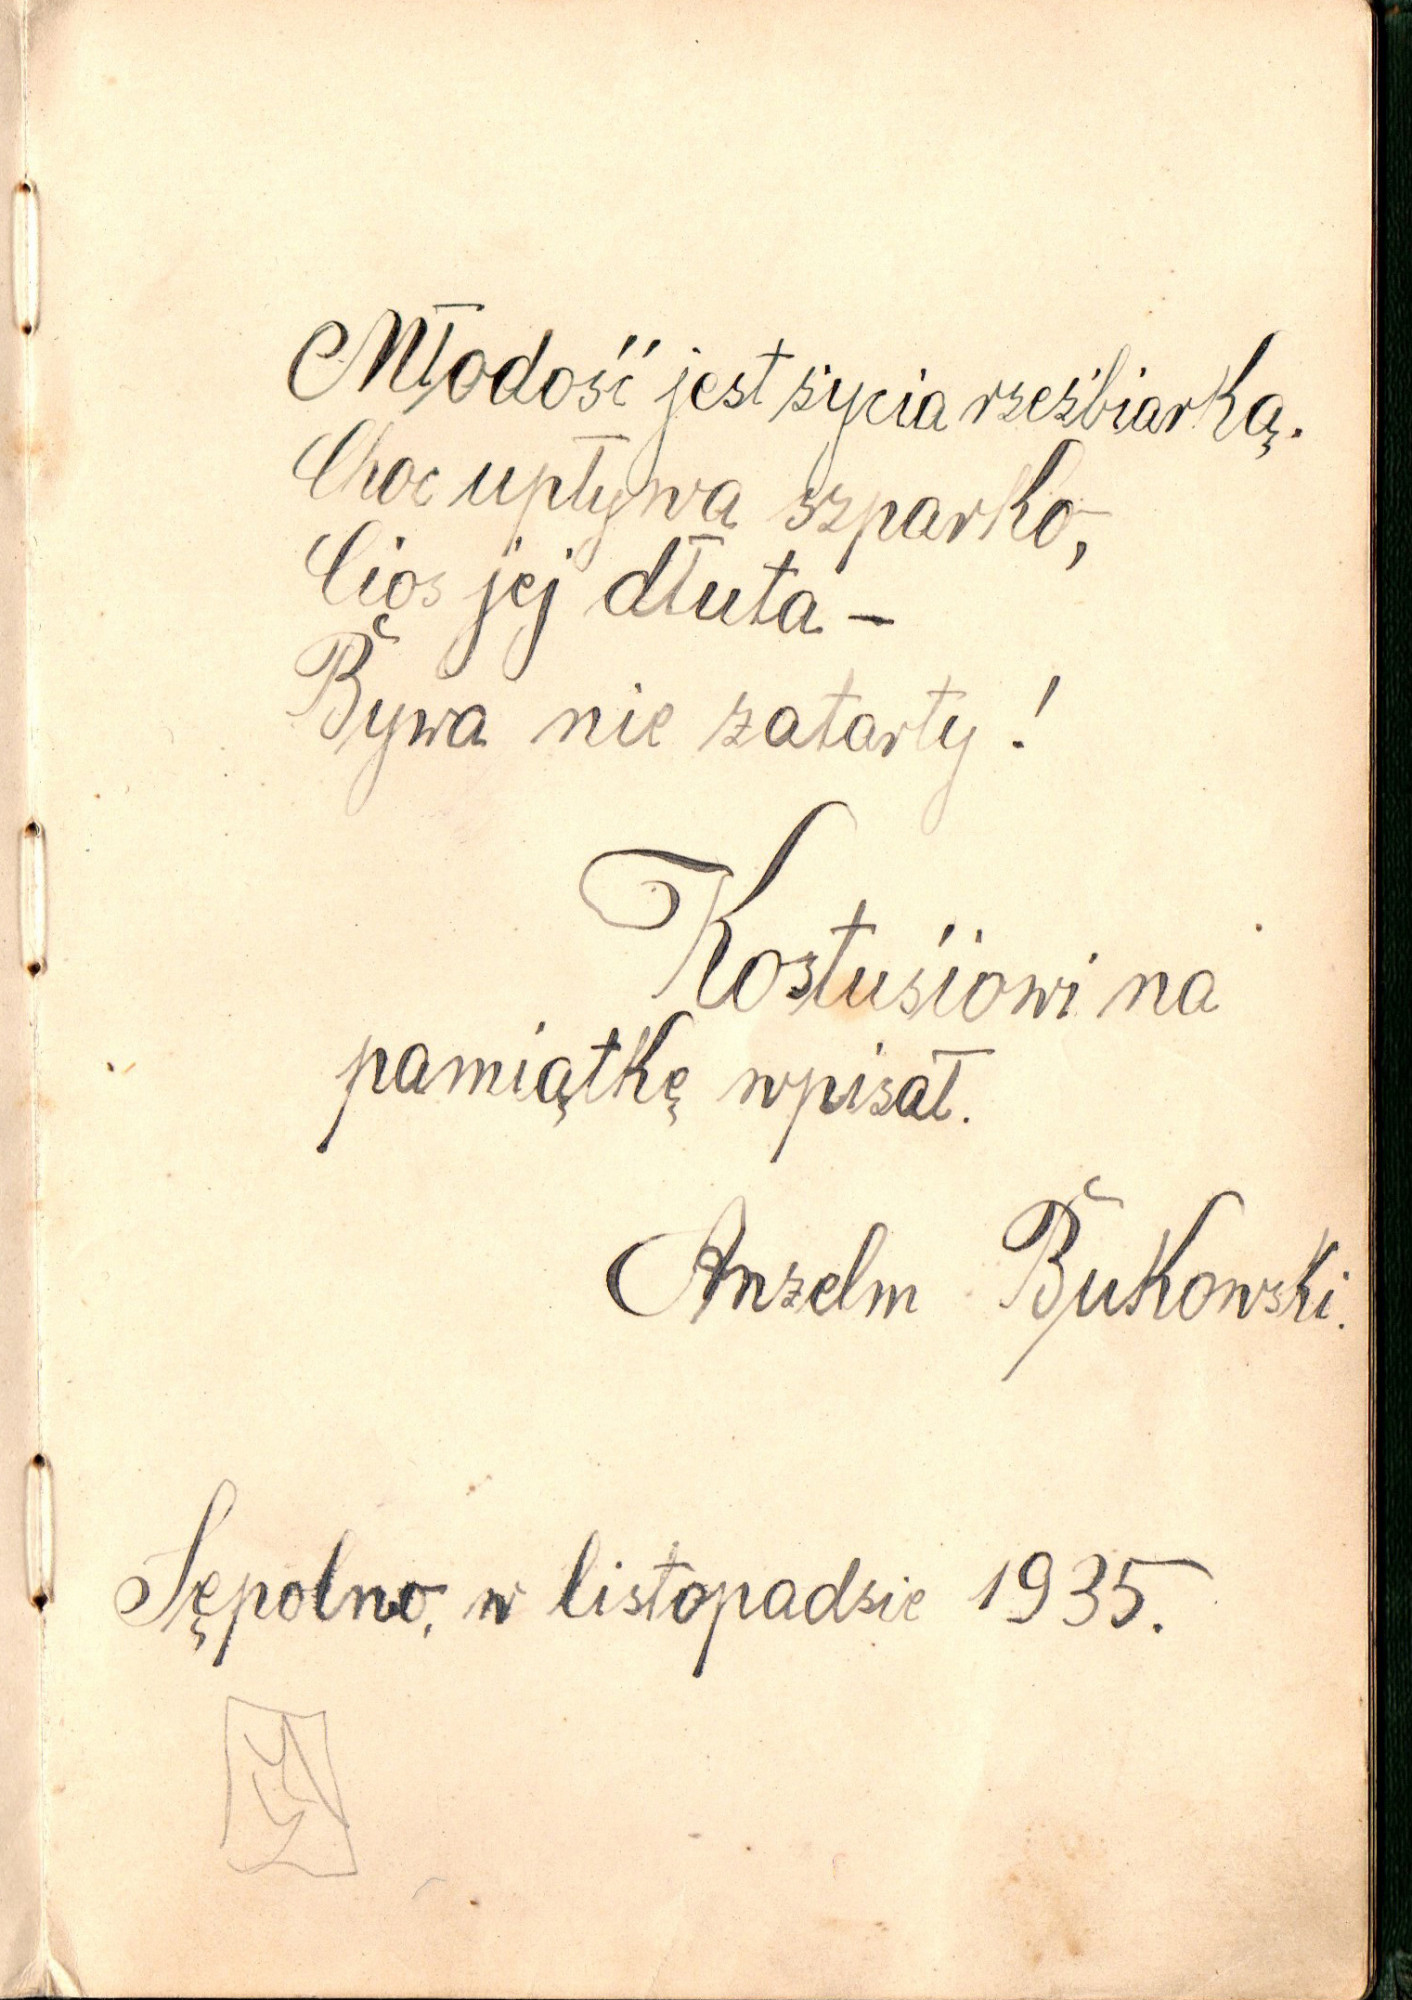 Młodość jest życia rzeźbiarką.
Choc upływa szparko,
Cios jej dłuta –
Bywa nie zatarty!
Kostusiowi na
pamiątkę wpisał.
Anzelm Bukowski.
Sępolno, w listopadzie 1935.